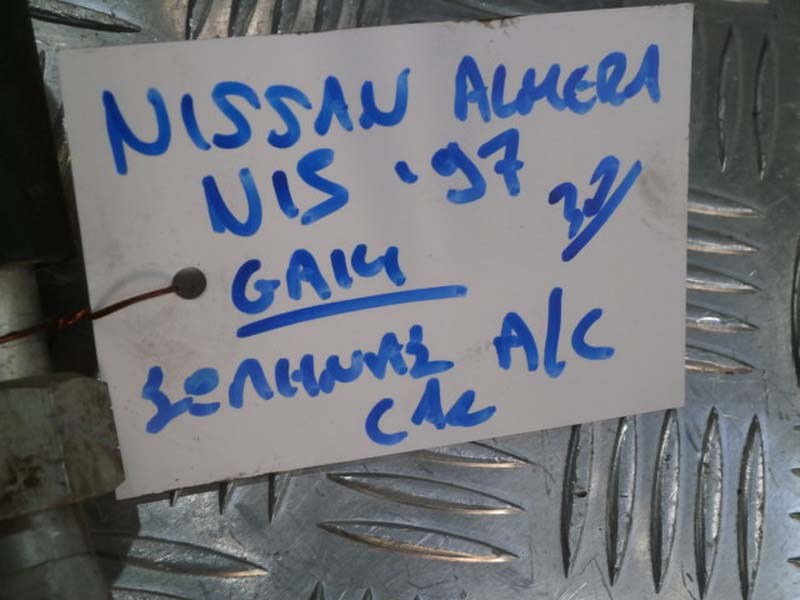 NISSAN ALMERA
N15 '97
GA14
ΣΩΛΗΝΑΣ A/C